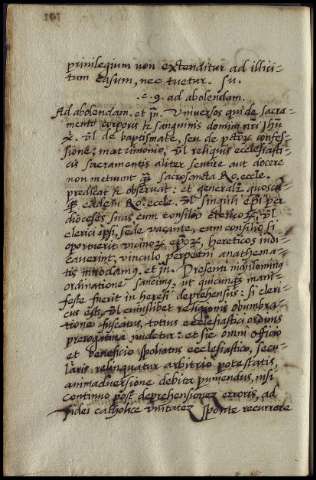 priuilegium non extenditur ad illici-
tum casum, nec tuetur. su.
.c. 9. ad abolendam.
Ad abolendam. et jn. Vniuersos qui de sacra-
mento corporis et sanguinis domini nri
vl de baptismate, seu de confes-
sione, matrimonio, vl reliquis ecclesiasti-
cis sacramentis aliter sentire aut docere
non metuunt sacrosancta Ro. eccle.
predicat et obseruat: et generalr quoscu-
eadem Ro. eccle. vl singuli epi per
dioceses suas cum consilio clericoz, vl
clerici ipsi, sede vacante, cum consilio si
oportuerit vicinoz epoz, hereticos iudi-
cauerint, vinculo perpetui anathema-
tis innodamus. et jn. Presenti nihilominus
ordinatione sancimus, ut quicunqz mani-
feste fuerit in heresi deprehensus: si cleri-
cus est, vl cuiuslibet religionis obumbra-
tione fuscatus, totius ecclesiastici ordinis
prerogatiua nudetur: et sic omni officio
et beneficio spoliatus ecclesiastico, secu-
laris relinquatur arbitrio potestatis,
animaduersione debita puniendus, nisi
continuo post deprehensionem erroris, ad
fidei catholice vnitatez sponte recurrere